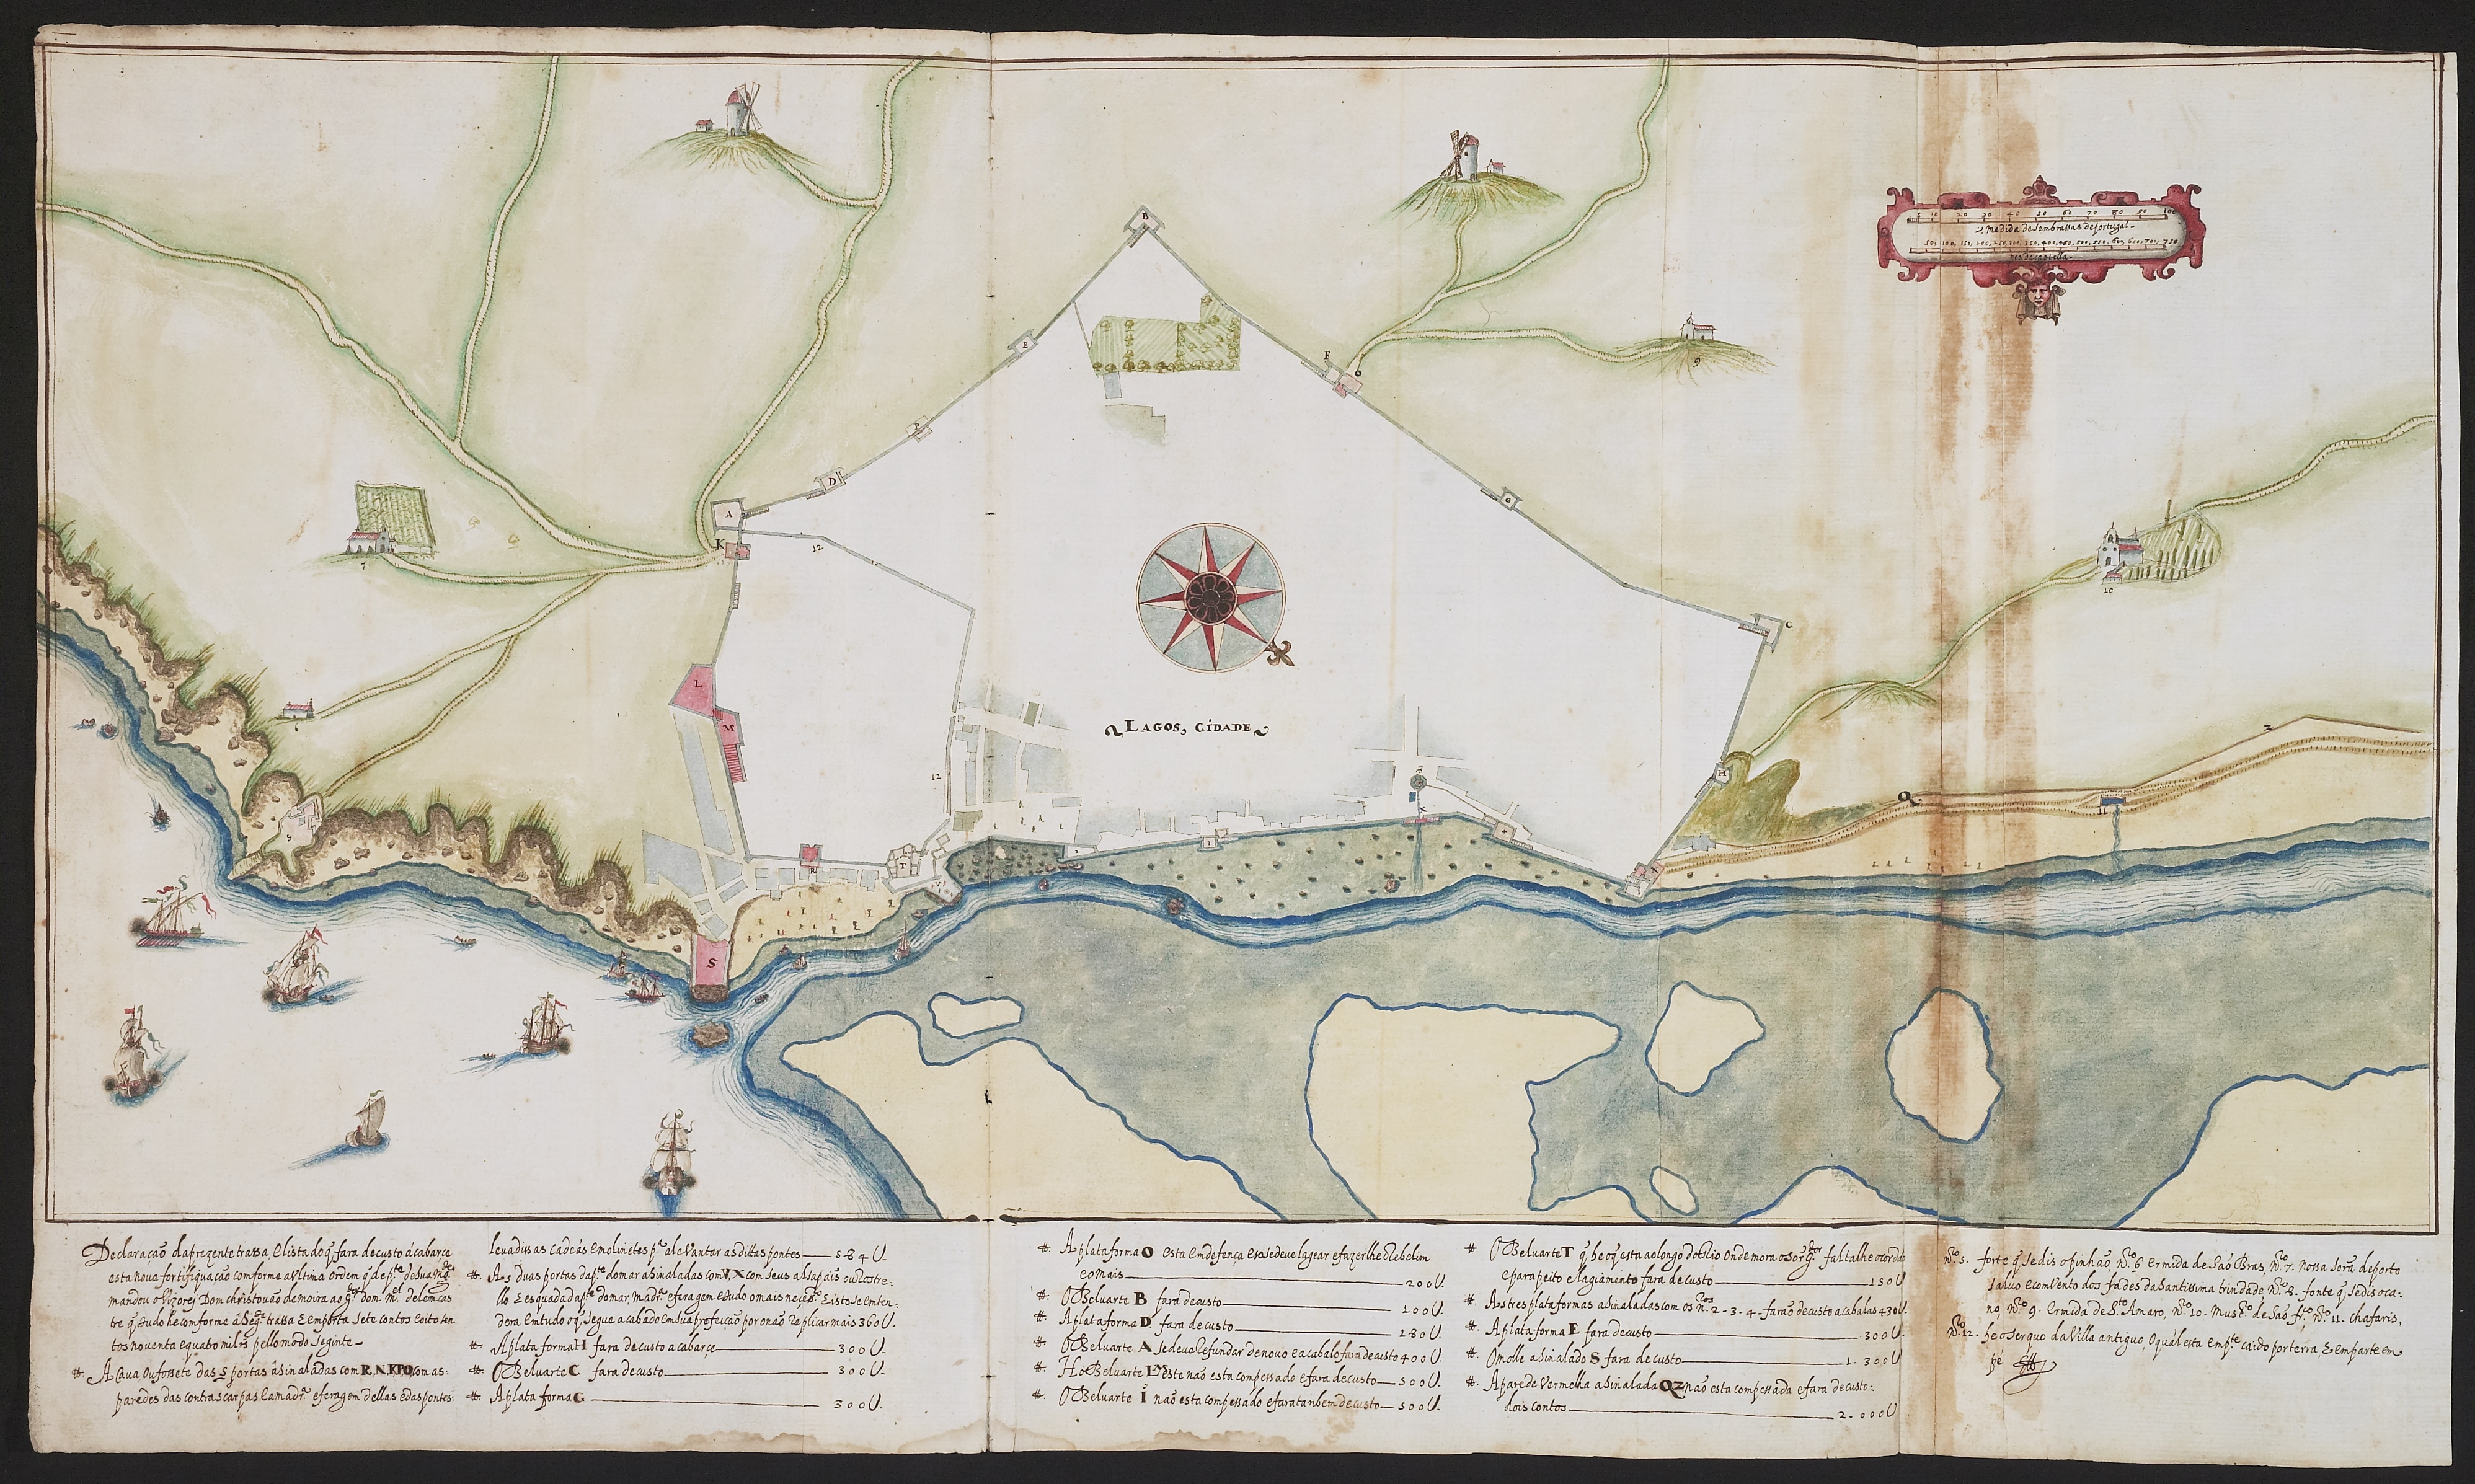 Medida de sem brassas de portugal
5 10 20 30 40 50 60 70 80 90 100
50, 100, 150, 200, 250, 300, 350, 400, 450, 500, 550, 600, 650, 700, 750
pes de castella
LAGOS, CIDADE
B
E
F
O
P
D
A
K
12
G
C
L
M
H
12
Q
Z
R
T
I
X
N
S
5
7
9
10
Declaração da prezente trassa, e lista do q̃ fara de custo a cabarçe
esta nova fortifiquação comforme a ultima ordem q̃ de pte de sua Mgde
mandou o Vizorej Dom christovão de moira ao gdor dom Mel de lemcas
tre q̃ tudo he comforme á Segte trassa E emporta sete contos e oito sen
tos noventa e quatro mil rs pello modo seginte
#. A Cava ou fossete das 5 portas âsinaladas com R. N. K P O, com as
paredes das contrascarpas E a madra e feragem dellas e das pontes
levadissas cadeas e molinetes pa alevantar as dittas pontes — 584U.
#. As duas portas da pte do mar asinaladas com V, X com seus alsapais ou Rostre:
llo E esquada da pte do mar, madra e feragem e tudo o mais necepro E isto se enten:
dera em tudo o q̃ se gue acabado em sua prefeição por não Replicar mais 360U.
#. A plataforma H fara de custo acabarçe — 300U.
#. O Beluarte C fara de custo — 300U.
#. A plata forma G — 300U.
#. A plataforma O esta em defença E so se deve lagear e fazer lhe o Rebelim
e o mais — 200U.
#. O Beluarte B fara de custo — 100U.
#. A plataforma D fara de custo — 180U.
#. O Beluarte A se deve Refundar de novo e acaba lo fara de custo 400U.
#. Ho Beluarte este não esta comessado e fara de custo — 500U.
#. O Beluarte I não esta comessado e fara tanbem de custo — 500U.
#. O Beluarte T q̃ he o q̃ esta ao longo do Rio onde mora o gdor falta lhe o cordão
e parapeito e lagiamento fara de custo — 150U
#. As tres plataformas asinaladas com os nros 2 - 3 - 4 - farão de custo acabalas 430U.
#. A plataforma E fara de custo — 300U.
#. O molle asinalado S fara de custo — 1-300U
#. A parede Vermelha asinalada QZ não esta comessada e fara de custo:
dois contos — 2-000U
nro 5. forte q̃ se dis o pinhão, nro 6 Ermida de São Bras, nro 7. Nossa Sora do porto
salvo e comvento dos frades da Santissima trindade, nro 8. fonte q̃ se dis o ca:
no, nro 9. Ermida de Sto Amaro, nro 10. Mustro de São fro, nro 11. chafaris,
nro 12. he o serquo da Villa antiguo, O qual esta em pte caido por terra, E em parte em
pé